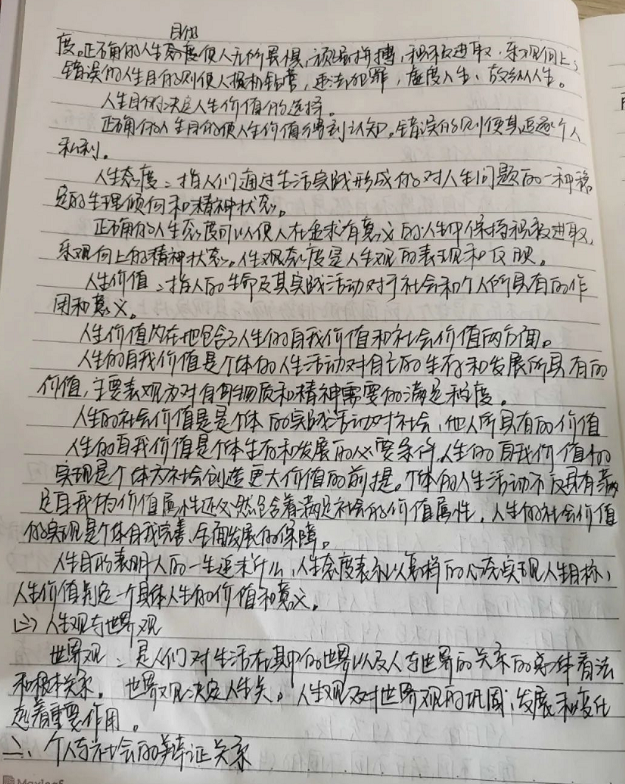 目的
度。正确的人生态度使人无所畏惧,顽强拼搏,积极进取,乐观向上;
错误的人生目的则使人投机钻营,违法犯罪,虚度人生,放纵人生。
人生目的决定人生价值的选择。
正确的人生目的使人生价值得到认知,错误的则使其追逐个人
私利。
人生态度:指人们通过生活实践形成的对人生问题的一种稳
定的生理倾向和精神状态。
正确的人生态度可以使人在追求有意义的人生中保持积极进取,
乐观向上的精神状态。人生观态度是人生观的表现和反映。
人生价值:指人的生命及其实践活动对于社会和个人所具有的作
用和意义。
人生价值内在地包含了人生的自我价值和社会价值两方面。
人生的自我价值是个体的人生活动对自己的生存和发展所具有的
价值,主要表现为对自身物质和精神需要的满足程度。
人生的社会价值是是个体的实践活动对社会,他人所具有的价值
人生的自我价值是个体生存和发展的必要条件,人生的自我价值的
实现是个体为社会创造更大价值的前提。个体的人生活动不仅具有满
足自我的价值属性还必然包含着满足社会的价值属性,人生的社会价值
的实现是个体自我完善,全面发展的保障。
人生目的表明人的一生追求什么,人生态度表示以怎样的心态实现人生目标,
人生价值判定一个具体人生的价值和意义。
人生观与世界观
世界观:是人们对生活在其中的世界以及人与世界的关系的总体看法
和根本关系。世界观决定人生观。人生观又对世界观的巩固,发展和变化
起着重要作用。
二、个人与社会的辩证关系